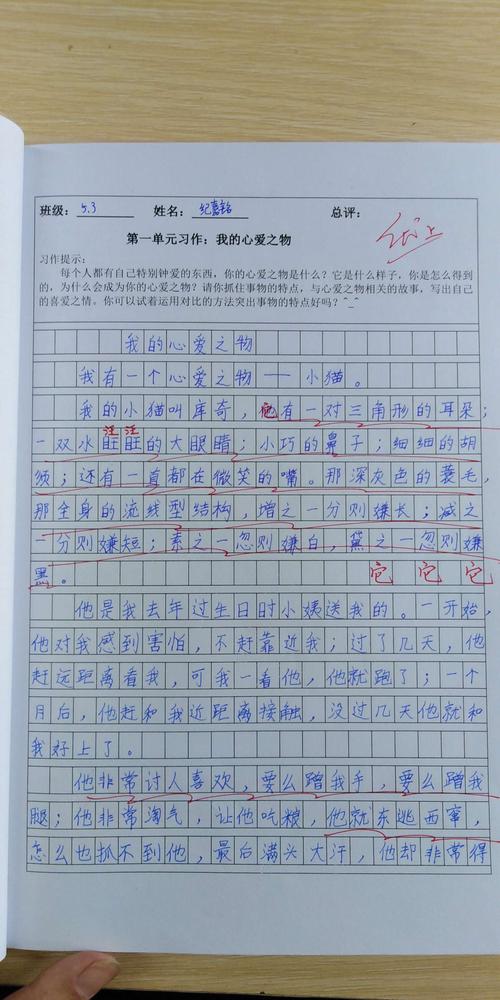 班级：5.3 姓名：纪嘉铭 总评：优上
第一单元习作：我的心爱之物
习作提示：
每个人都有自己特别钟爱的东西，你的心爱之物是什么？它是什么样子，你是怎么得到
的，为什么会成为你的心爱之物？请你抓住事物的特点，与心爱之物相关的故事，写出自己
的喜爱之情。你可以试着运用对比的方法突出事物的特点好吗？^_^
我的心爱之物
我有一个心爱之物——小猫。
我的小猫叫库奇，他有一对三角形的耳朵；
汪汪
一双水旺旺的大眼睛；小巧的鼻子；细细的胡
须；还有一直都在微笑的嘴。那深灰色的蓑毛，
那全身的流线型结构，增之一分则嫌长；减之
一分则嫌短；素之一忽则嫌白，黛之一忽则嫌
黑。 它 它 它
他是我去年过生日时小姨送我的。一开始，
他对我感到害怕，不赶靠近我；过了几天，他
赶远距离看我，可我一看他，他就跑了；一个
月后，他赶和我近距离接触，没过几天他就和
我好上了。
他非常讨人喜欢，要么蹭我手，要么蹭我
腿；他非常淘气，让他吃粮，他就东逃西窜，
怎么也抓不到他，最后满头大汗，他却非常得